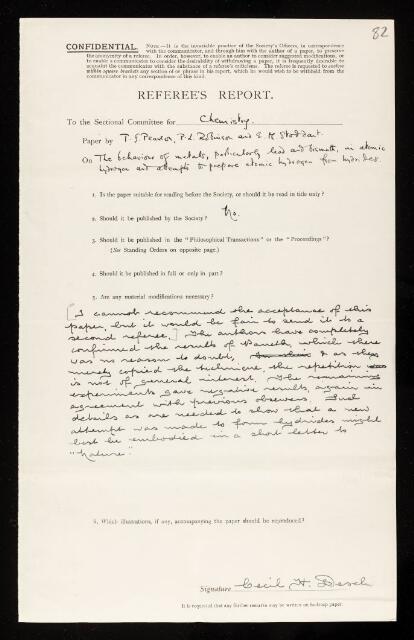 82
CONFIDENTIAL. NOTE.—It is the invariable practice of the Society's Officers, in correspondence
with the communicator, and through him with the author of a paper, to preserve
the anonymity of a referee. In order, however, to enable an author to consider suggested modifications, or
to enable a communicator to consider the desirability of withdrawing a paper, it is frequently desirable to
acquaint the communicator with the substance of a referee's criticisms. The referee is requested to enclose
within square brackets any section of or phrase in his report, which he would wish to be withheld from the
communicator in any correspondence of this kind.
REFEREE'S REPORT.
To the Sectional Committee for Chemistry.
Paper by T. G. Pearson, P. L. Robinson and E. M. Stoddart.
On The behaviour of metals, particularly lead and bismuth, in atomic
hydrogen and attempts to prepare atomic hydrogen from hydrides.
1. Is the paper suitable for reading before the Society, or should it be read in title only?
2. Should it be published by the Society? No.
3. Should it be published in the "Philosophical Transactions" or the "Proceedings"?
(See Standing Orders on opposite page.)
4. Should it be published in full or only in part?
5. Are any material modifications necessary?
[I cannot recommend the acceptance of this
paper, but it would be fair to send it to a
second referee.] The authors have completely
confirmed the results of Paneth, which there
was no reason to doubt, & as they
merely copied the technique, the repetition
is not of general interest. The remaining
experiments gave negative results, again in
agreement with previous observers. Such
details as are needed to show that a new
attempt was made to form hydrides might
best be embodied in a short letter to
"Nature."
6. Which illustrations, if any, accompanying the paper should be reproduced?
Signature Cecil H. Desch
It is requested that any further remarks may be written on foolscap paper.